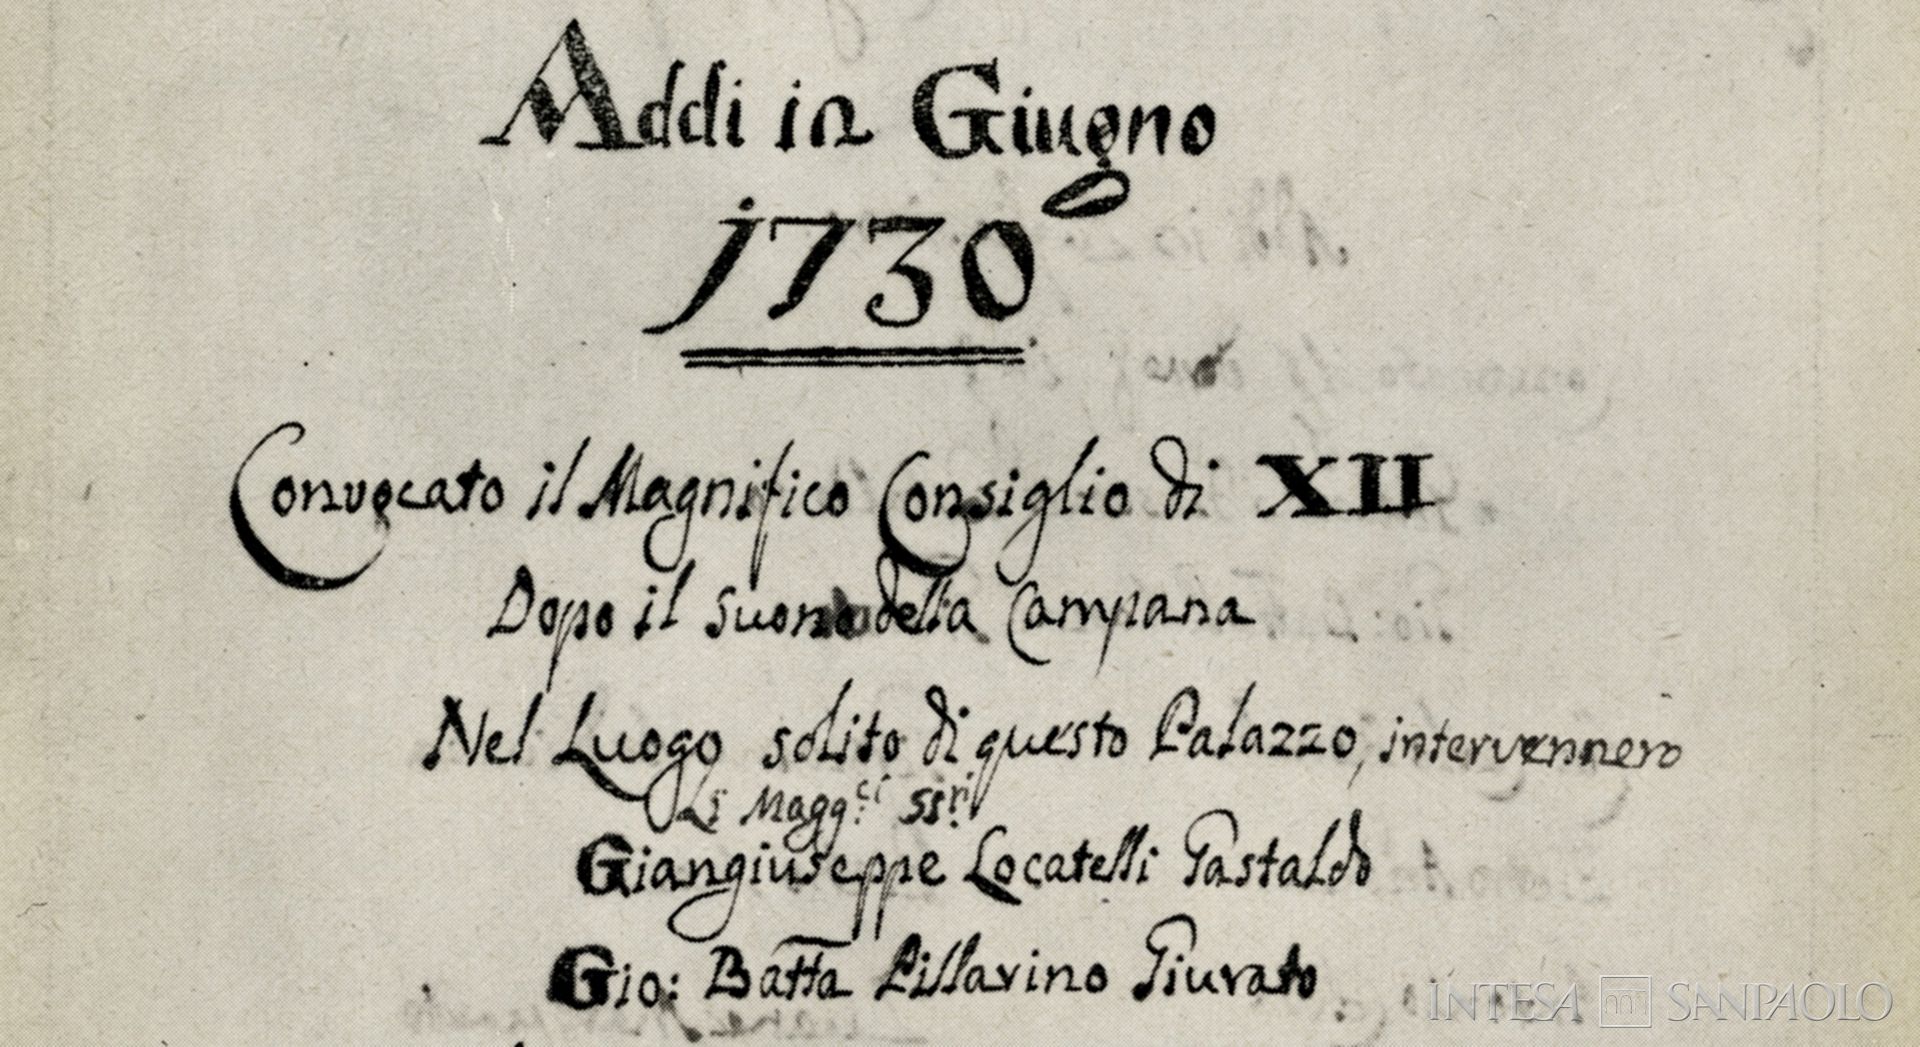 Addi in Giugno
1730
Convocato il Magnifico Consiglio di XII
Dopo il suono della Campana
Nel Luogo solito di questo Palazzo, intervennero
Li Magg.ci SS.ri
Giangiuseppe Locatelli Gastaldo
Gio: Batta Pillarino Giurato
INTESA SANPAOLO